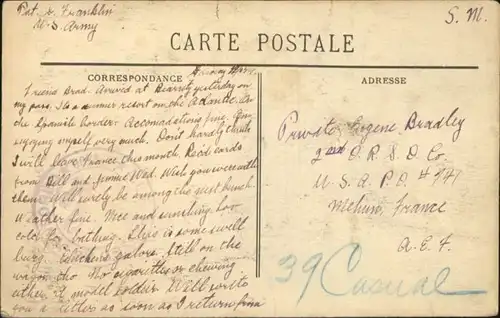 Pvt. A. Franklin
U.S. Army
S. M.
CARTE POSTALE
CORRESPONDANCE
ADRESSE
Friday
Friend Brad. Arrived at Biarritz yesterday on
my pass. Its a summer resort on the Atlantic. On
the Spanish border. Accomadations fine. Am
enjoying myself very much. Don't hardly think
I will leave France this month. Recd cards
from Bill and Jimmie Wed. Wish you were with
them. Will surely be among the next bunch.
Weather fine. Nice and sunshiny, too
cold for bathing. This is some swell
burg. Chickens galore. Still on the
wagon tho. No cigarettes or chewing
either. A model soldier. Well write
you a letter as soon as I return from
Private Eugene Bradley
2nd O.R.S.D. Co.
U.S.A. P.O. # 741
Mehun, France
A.E.F.
39 Casual